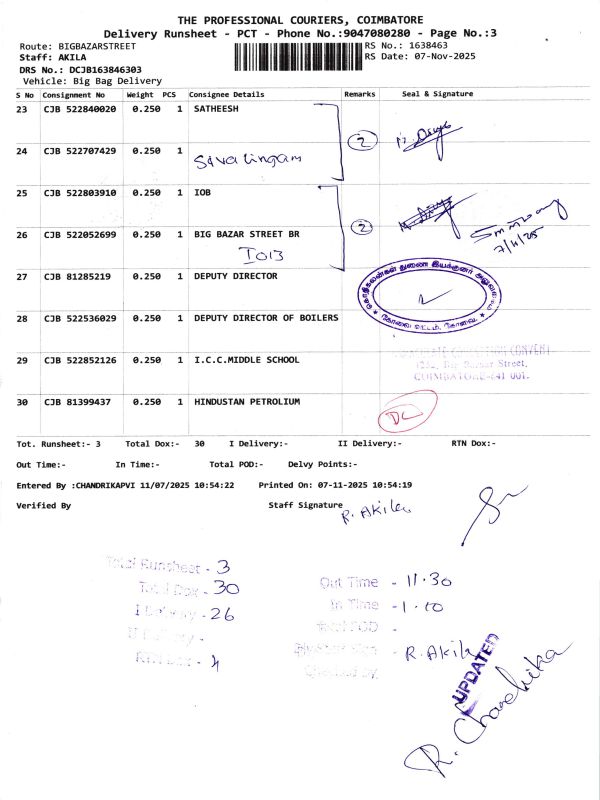 THE PROFESSIONAL COURIERS, COIMBATORE
Delivery Runsheet - PCT - Phone No.:9047080280 - Page No.:3
Route: BIGBAZARSTREET
RS No.: 1638463
Staff: AKILA
RS Date: 07-Nov-2025
DRS No.: DCJB163846303
Vehicle: Big Bag Delivery
S No Consignment No Weight PCS Consignee Details Remarks Seal & Signature
23 CJB 522840020 0.250 1 SATHEESH
2
24 CJB 522707429 0.250 1 Sivalingam
25 CJB 522803910 0.250 1 IOB
2
26 CJB 522052699 0.250 1 BIG BAZAR STREET BR
7/11/25
IOB
27 CJB 81285219 0.250 1 DEPUTY DIRECTOR
கொதிகலன்கள் துணை இயக்குனர் அலுவலகம்
கோவை வட்டம், கோவை.
28 CJB 522536029 0.250 1 DEPUTY DIRECTOR OF BOILERS
CONVENT
29 CJB 522852126 0.250 1 I.C.C.MIDDLE SCHOOL
Big Bazaar Street,
COIMBATORE-641 001.
30 CJB 81399437 0.250 1 HINDUSTAN PETROLIUM
DL
Tot. Runsheet:- 3 Total Dox:- 30 I Delivery:- II Delivery:- RTN Dox:-
Out Time:- In Time:- Total POD:- Delvy Points:-
Entered By :CHANDRIKAPVI 11/07/2025 10:54:22 Printed On: 07-11-2025 10:54:19
Verified By Staff Signature R. Akila
Total Runsheet - 3
Total Dox - 30
I Delivery - 26
II Delivery -
RTN Dox - 4
Out Time - 11.30
In Time - 1.10
Total POD -
R. Akila
Checked by
UPDATED
R. Chandrika